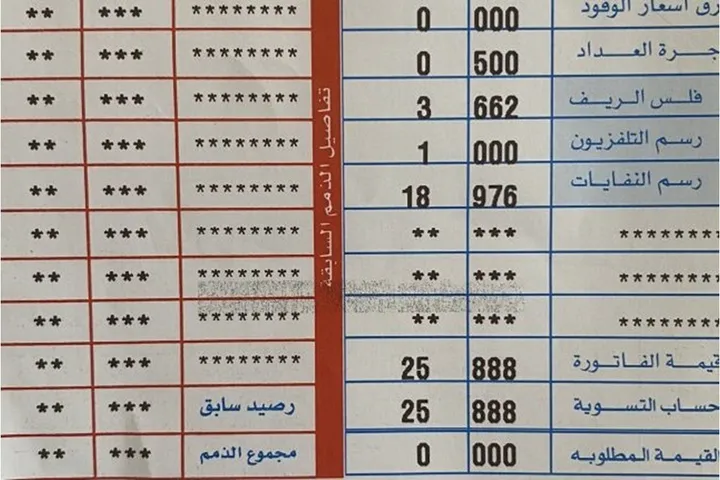 رق أسعار الوقود 000 0 ******** *** **
جرة العداد 500 0 ******** *** **
فلس الريف 662 3 ******** *** **
رسم التلفزيون 000 1 ******** *** **
رسم النفايات 976 18 ******** *** **
******** *** ** ******** *** **
******** *** ** ******** *** **
******** *** ** ******** *** **
قيمة الفاتورة 888 25 ******** *** **
حساب التسوية 888 25 رصيد سابق *** **
القيمة المطلوبه 000 0 مجموع الذمم *** **
تفاصيل الذمم السابقة